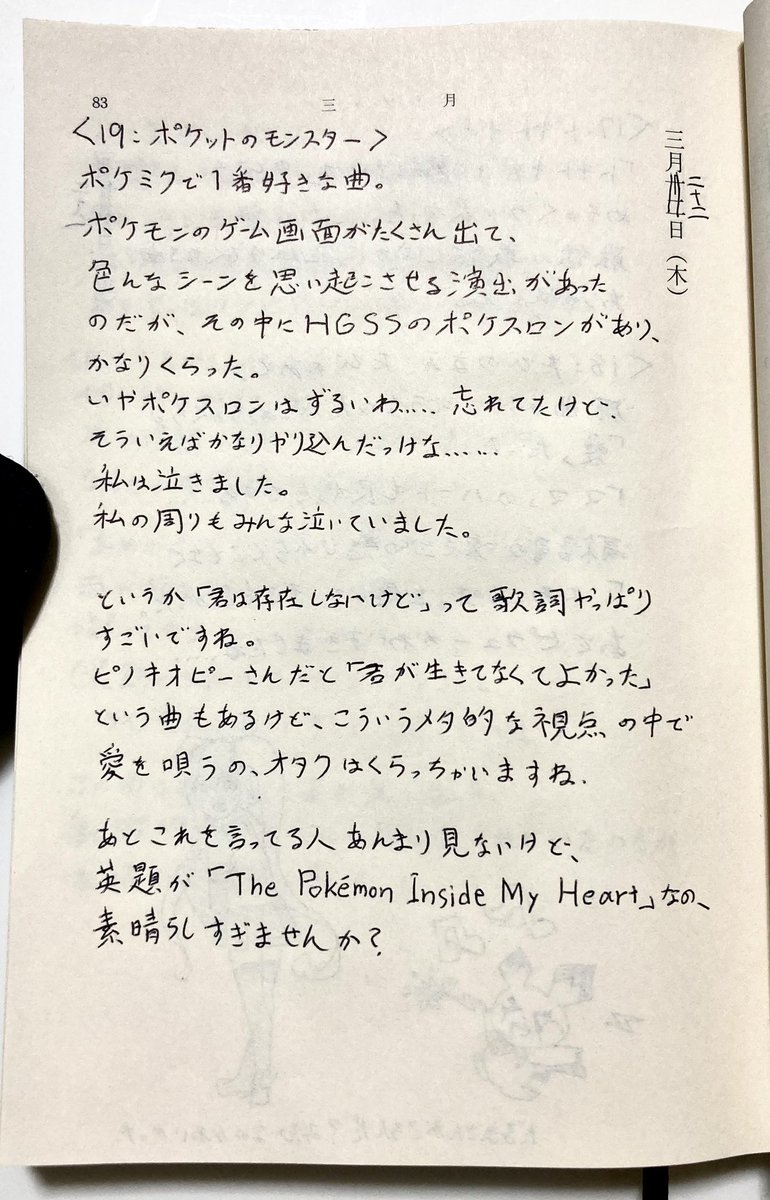 83
三月
三月二十二日(木)
<19:ポケットのモンスター>
ポケミクで1番好きな曲。
ポケモンのゲーム画面がたくさん出て、
色んなシーンを思い起こさせる演出があった
のだが、その中にHGSSのポケスロンがあり、
かなりくらった。
いやポケスロンはずるいわ.....忘れてたけど、
そういえばかなりやり込んだっけな......
私は泣きました。
私の周りもみんな泣いていました。
というか「君は存在しないけど」って歌詞やっぱり
すごいですね。
ピノキオピーさんだと「君が生きてなくてよかった」
という曲もあるけど、こういうメタ的な視点の中で
愛を唄うの、オタクはくらっちゃいますね.
あとこれを言ってる人あんまり見ないけど、
英題が「The Pokémon Inside My Heart」なの、
素晴らしすぎませんか?